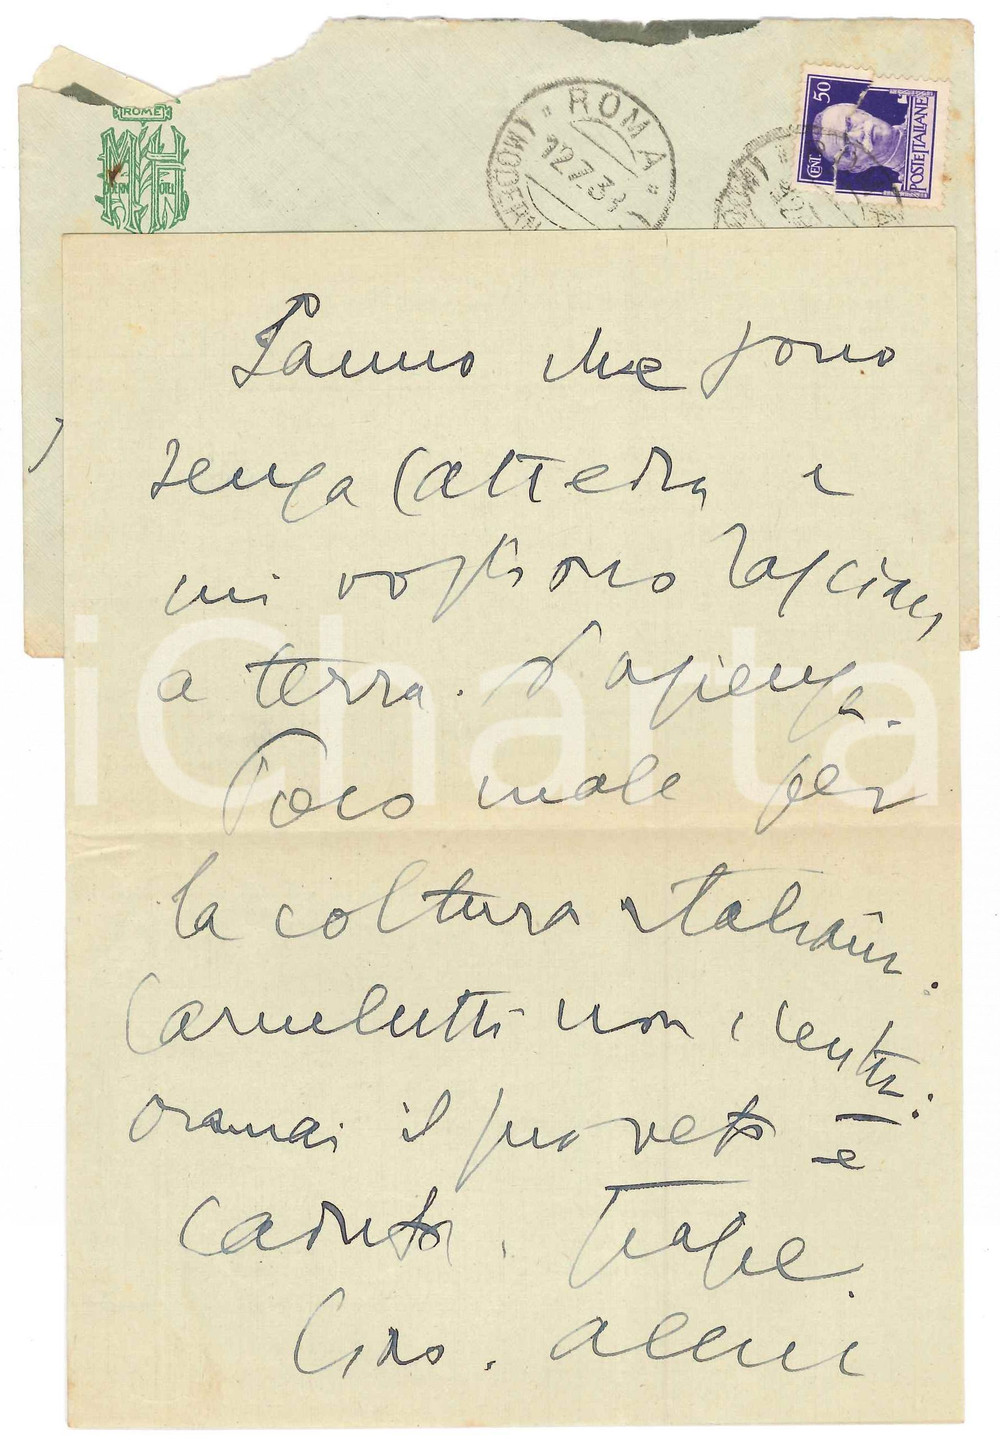 ROME
MODERN HOTEL
ROMA
12.7.38
CENT. 50
POSTE ITALIANE
Sanno che sono
senza cattedra e
mi vogliono lasciar
a terra. Pazienza.
Poco male per
la coltura italiana.
Carnelutti non c'entra.
oramai il suo veto è
caduto.
Ciao.
iCharta